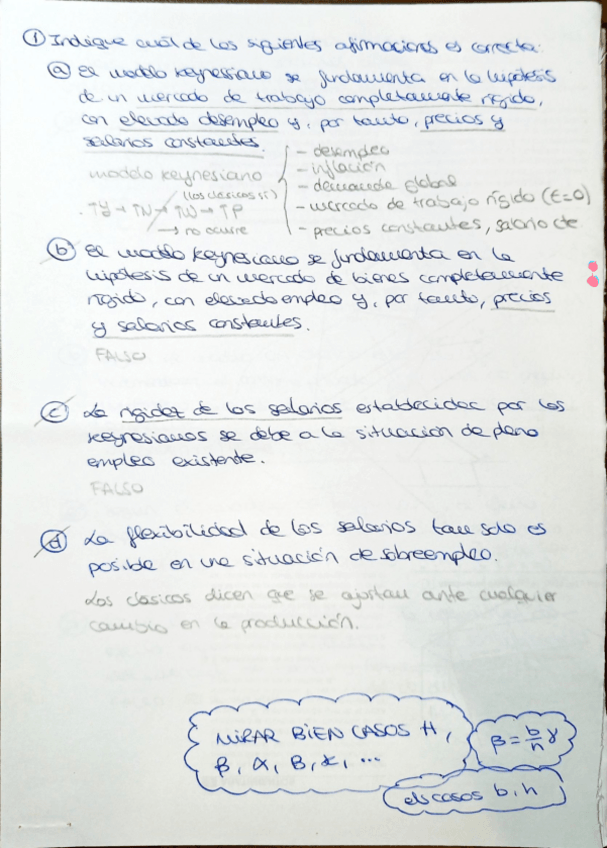 ① Indique cuál de las siguientes afirmaciones es correcta:
ⓐ El modelo keynesiano se fundamenta en la hipótesis
de un mercado de trabajo completamente rígido,
con elevado desempleo y, por tanto, precios y
salarios constantes.
modelo keynesiano
- desempleo
- inflación
- demanda global
- mercado de trabajo rígido (ε=0)
- precios constantes, salario cte
(los clásicos sí)
. ↑Y → ↑N → ↑W → ↑P
→ no ocurre
ⓑ El modelo keynesiano se fundamenta en la
hipótesis de un mercado de bienes completamente
rígido, con elevado empleo y, por tanto, precios
y salarios constantes.
FALSO
ⓒ La rigidez de los salarios establecidas por los
keynesianos se debe a la situación de pleno
empleo existente.
FALSO
ⓓ La flexibilidad de los salarios tan solo es
posible en una situación de sobreempleo.
Los clásicos dicen que se ajustan ante cualquier
cambio en la producción.
MIRAR BIEN CASOS H,
β, α, B, ...
β = b/h γ
casos b, h